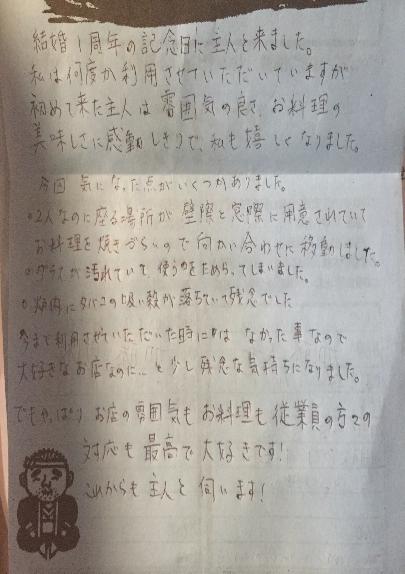 結婚1周年の記念日に主人と来ました。
私は何度か利用させていただいていますが
初めて来た主人は雰囲気の良さ、お料理の
美味しさに感動しきりで、私も嬉しくなりました。
今回 気になった点がいくつかありました。
○2人なのに座る場所が壁際と窓際に用意されていて
お料理を焼きづらいので向かい合わせに移動しました。
○グラスが汚れていて、使うのをためらってしまいました。
○ 内にタバコの吸い殻が落ちていて残念でした
今まで利用させていただいた時には なかった事なので
大好きなお店なのに…と少し残念な気持ちになりました。
でもやっぱり お店の雰囲気もお料理も従業員の方々の
対応も最高で大好きです!
これからも主人と伺います!